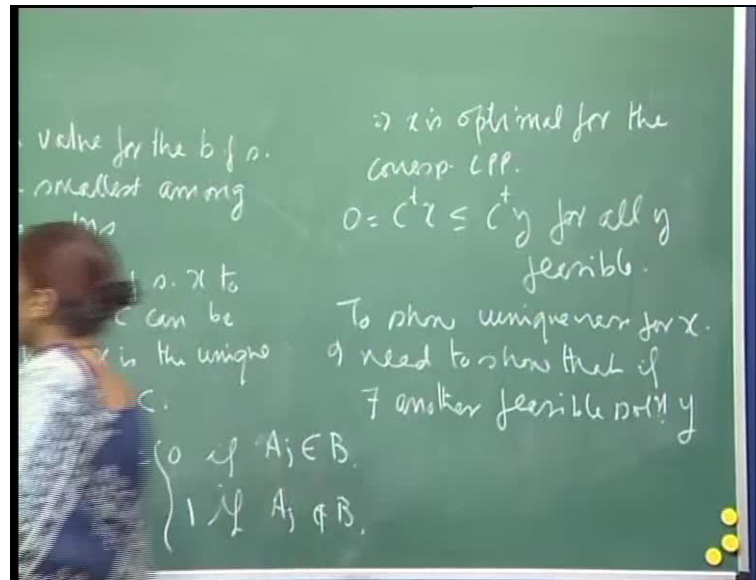 value for the b f s.
smallest among
s. x to
c can be
x is the unique
C.
= { 0 if Aj ∈ B.
1 if Aj ∉ B.
⇒ x is optimal for the
corresp. LPP.
0 = Cᵗx ≤ Cᵗy for all y
feasible.
To show uniqueness for x.
I need to show that if
∃ another feasible soln y